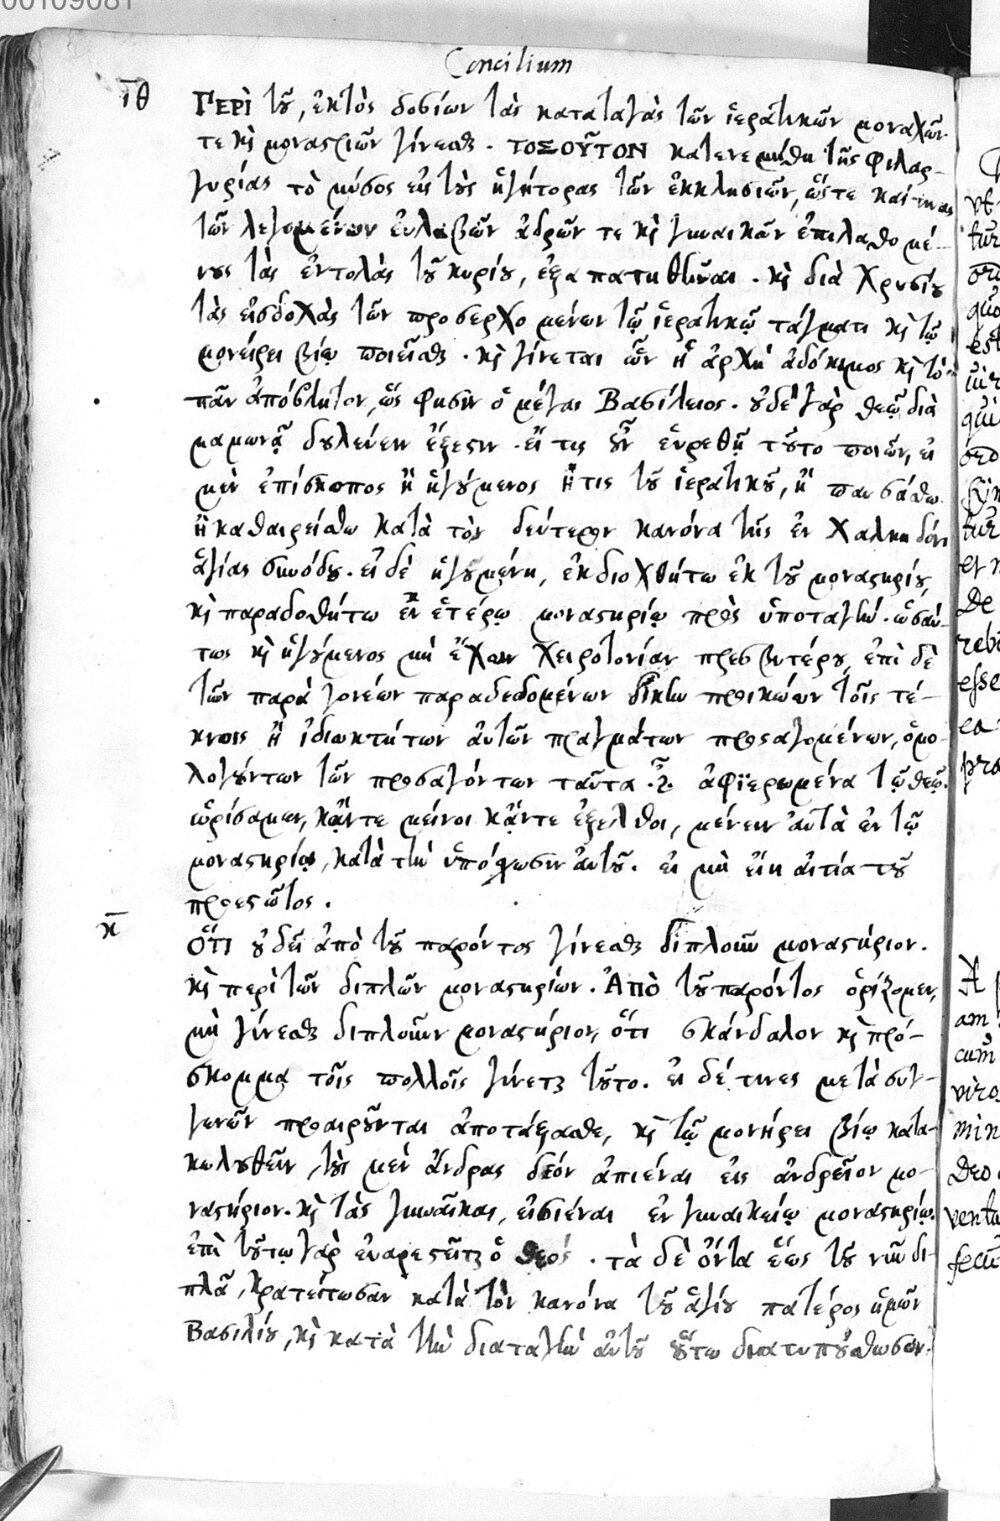 00109081
Concilium
ιθ Περὶ τοῦ, ἐκτὸς δοσίων τὰς καταταγὰς τῶν ἱερατικῶν μοναχῶν
τε κὶ μοναστριῶν γίνεσθαι. ΤΟΣΟΥΤΟΝ κατενεμήθη τῆς φιλαρ-
γυρίας τὸ μύσος εἰς τοὺς ἡγήτορας τῶν ἐκκλησιῶν, ὥστε καί τινας
τῶν λεγομένων εὐλαβῶν ἀδρῶν τε κὶ γυναικῶν ἐπιλαθομέ-
νους τὰς ἐντολὰς τοῦ κυρίου, ἐξαπατηθῆναι. κὶ διὰ χρυσίου
τὰς εἰσδοχὰς τῶν προσερχομένων τῷ ἱερατικῷ τάγματι κὶ τῷ
μονήρει βίῳ ποιεῖσθαι. κὶ γίνεται ὧν ἡ ἀρχὴ ἀδόκιμος κὶ τὸ
πᾶν ἀπόβλητον, ὥς φησὶν ὁ μέγας Βασίλειος. οὐδὲ γὰρ θεῷ διὰ
μαμωνᾷ δουλεύειν ἔξεστιν. εἴ τις οὖν εὑρεθῇ τοῦτο ποιῶν, εἰ
μὲν ἐπίσκοπος ἢ ἡγούμενος ἤ τις τοῦ ἱερατικοῦ, ἢ παυσάσθω
ἢ καθαιρείσθω κατὰ τὸν δεύτερον κανόνα τῆς ἐν Χαλκηδόνι
ἁγίας συνόδου. εἰ δὲ ἡγουμένη, ἐκδιοχθήτω ἐκ τοῦ μοναστηρίου,
κὶ παραδοθήτω ἐν ἑτέρῳ μοναστηρίῳ πρὸς ὑποταγήν. ὡσαύ-
τως κὶ ἡγούμενος μὴ ἔχων χειροτονίαν πρεσβυτέρου, ἐπὶ δὲ
τῶν παρὰ γονέων παραδεδομένων δίκην προικώων τοῖς τέ-
κνοις ἢ ἰδιωκτήτων αὐτῶν πραγμάτων προσαγομένων, ὁμο-
λογούντων τῶν προσαγόντων ταῦτα εἶναι ἀφιερωμένα τῷ θεῷ.
ὡρίσαμεν, κἄντε μείνοι κἄντε ἐξέλθοι, μένειν αὐτὰ ἐν τῷ
μοναστηρίῳ, κατὰ τὴν ὑπόσχεσιν αὐτοῦ. εἰ μὴ εἴη αἰτία τοῦ
προεστῶτος.
κ Ὅτι οὐ δεῖ ἀπὸ τοῦ παρόντος γίνεσθαι διπλοῦν μοναστήριον.
κὶ περὶ τῶν διπλῶν μοναστηρίων. Ἀπὸ τοῦ παρόντος ὁρίζομεν,
μὴ γίνεσθαι διπλοῦν μοναστήριον, ὅτι σκάνδαλον κὶ πρό-
σκομμα τοῖς πολλοῖς γίνεται τοῦτο. εἰ δέ τινες μετὰ συγ-
γενῶν προαιροῦνται ἀποτάξασθαι, κὶ τῷ μονήρει βίῳ κατα-
κολουθεῖν, τοὺς μὲν ἄνδρας δέον ἀπιέναι εἰς ἀνδρεῖον μο-
ναστήριον. κὶ τὰς γυναῖκας, εἰσιέναι ἐν γυναικείῳ μοναστηρίῳ.
ἐπὶ τούτῳ γὰρ εὐαρεστεῖται ὁ θεός. τὰ δὲ ὄντα ἕως τοῦ νῦν δι-
πλᾶ, κρατείτωσαν κατὰ τὸν κανόνα τοῦ ἁγίου πατέρος ἡμῶν
Βασιλίου, κὶ κατὰ τὴν διαταγὴν αὐτοῦ οὕτω διατυπούσθωσαν.